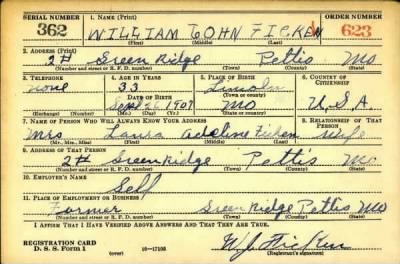 SERIAL NUMBER 1. NAME (Print) ORDER NUMBER
362 WILLIAM JOHN FICKEN 623
(First) (Middle) (Last)
2. ADDRESS (Print)
2# Green Ridge Pettis Mo
(Number and street or R. F. D. number) (Town) (County) (State)
3. TELEPHONE 4. AGE IN YEARS 5. PLACE OF BIRTH 6. COUNTRY OF CITIZENSHIP
none 33 Lincoln
DATE OF BIRTH (Town or county)
Sept 26 1907 Mo U.S.A.
(Exchange) (Number) (Mo.) (Day) (Yr.) (State or country)
7. NAME OF PERSON WHO WILL ALWAYS KNOW YOUR ADDRESS 8. RELATIONSHIP OF THAT PERSON
Mrs Laura Adeline Ficken Wife
(Mr., Mrs., Miss) (First) (Middle) (Last)
9. ADDRESS OF THAT PERSON
2# Green Ridge Pettis Mo
(Number and street or R. F. D. number) (Town) (County) (State)
10. EMPLOYER'S NAME
Self
11. PLACE OF EMPLOYMENT OR BUSINESS
Farmer Green Ridge Pettis Mo
(Number and street or R. F. D. number) (Town) (County) (State)
I AFFIRM THAT I HAVE VERIFIED ABOVE ANSWERS AND THAT THEY ARE TRUE.
REGISTRATION CARD
D. S. S. Form 1 (over) 16—17105 W J Ficken